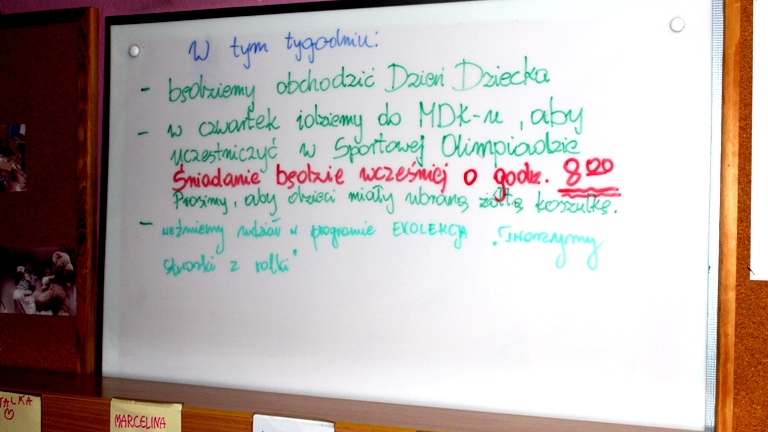 W tym tygodniu:
- będziemy obchodzić Dzień Dziecka
- w czwartek idziemy do MDK-u, aby
uczestniczyć w Sportowej Olimpiadzie
Śniadanie będzie wcześniej o godz. 8 20
Prosimy, aby dzieci miały ubraną żółtą koszulkę.
- weźmiemy udział w programie EKOLEKCJA "Stwarzymy
stworki z rolki"
TALKA
MARCELINA